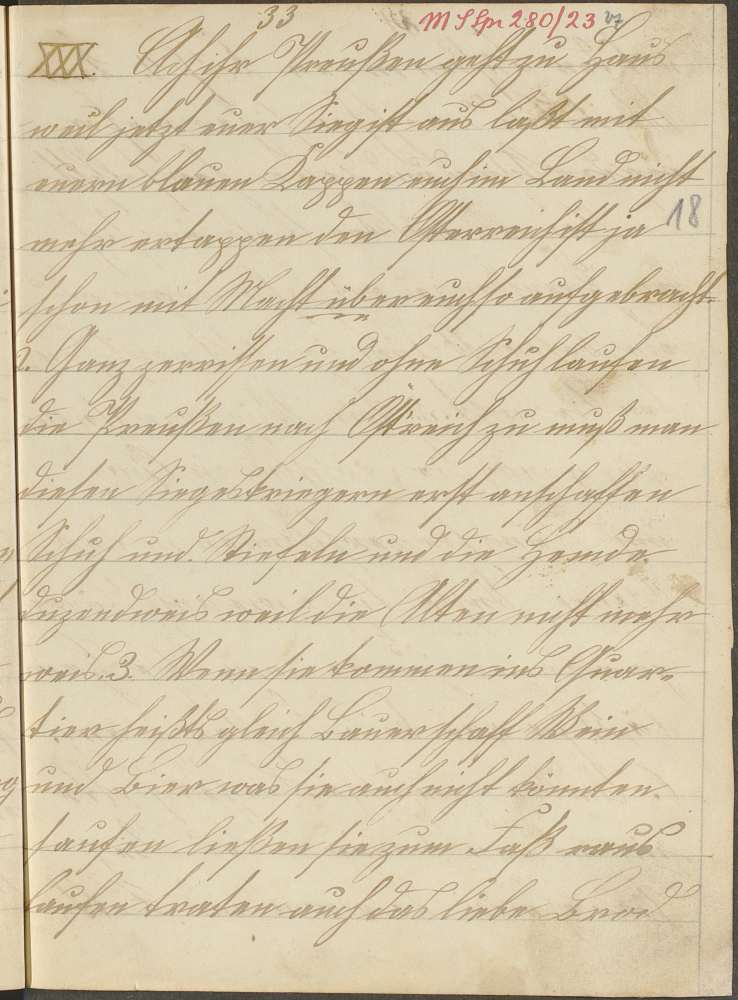 33
MS Spr 280/23 27
XXX. Ach ihr Preußen geht zu Haus
weil jetzt euer Sieg ist aus laßt mit
euern blauen Kappen euch im Land nicht
18
mehr ertappen den Östereich ist ja
schon mit Macht über euch so aufgebracht.
2. Ganz zerrissen und ohne Schuh laufen
die Preußen nach Östreich zu muß man
diesen Siegeskriegern erst anschaffen
Schuh und Stiefeln und die Hemde
duzendweis weil die Alten nicht mehr
weis. 3. Wenn sie kommen ins Quar-
tier heißts gleich Bauer schaff Wein
und Bier was sie auch nicht könnten
saufen ließen sie zum Faß raus
laufen traten auch das liebe Brod